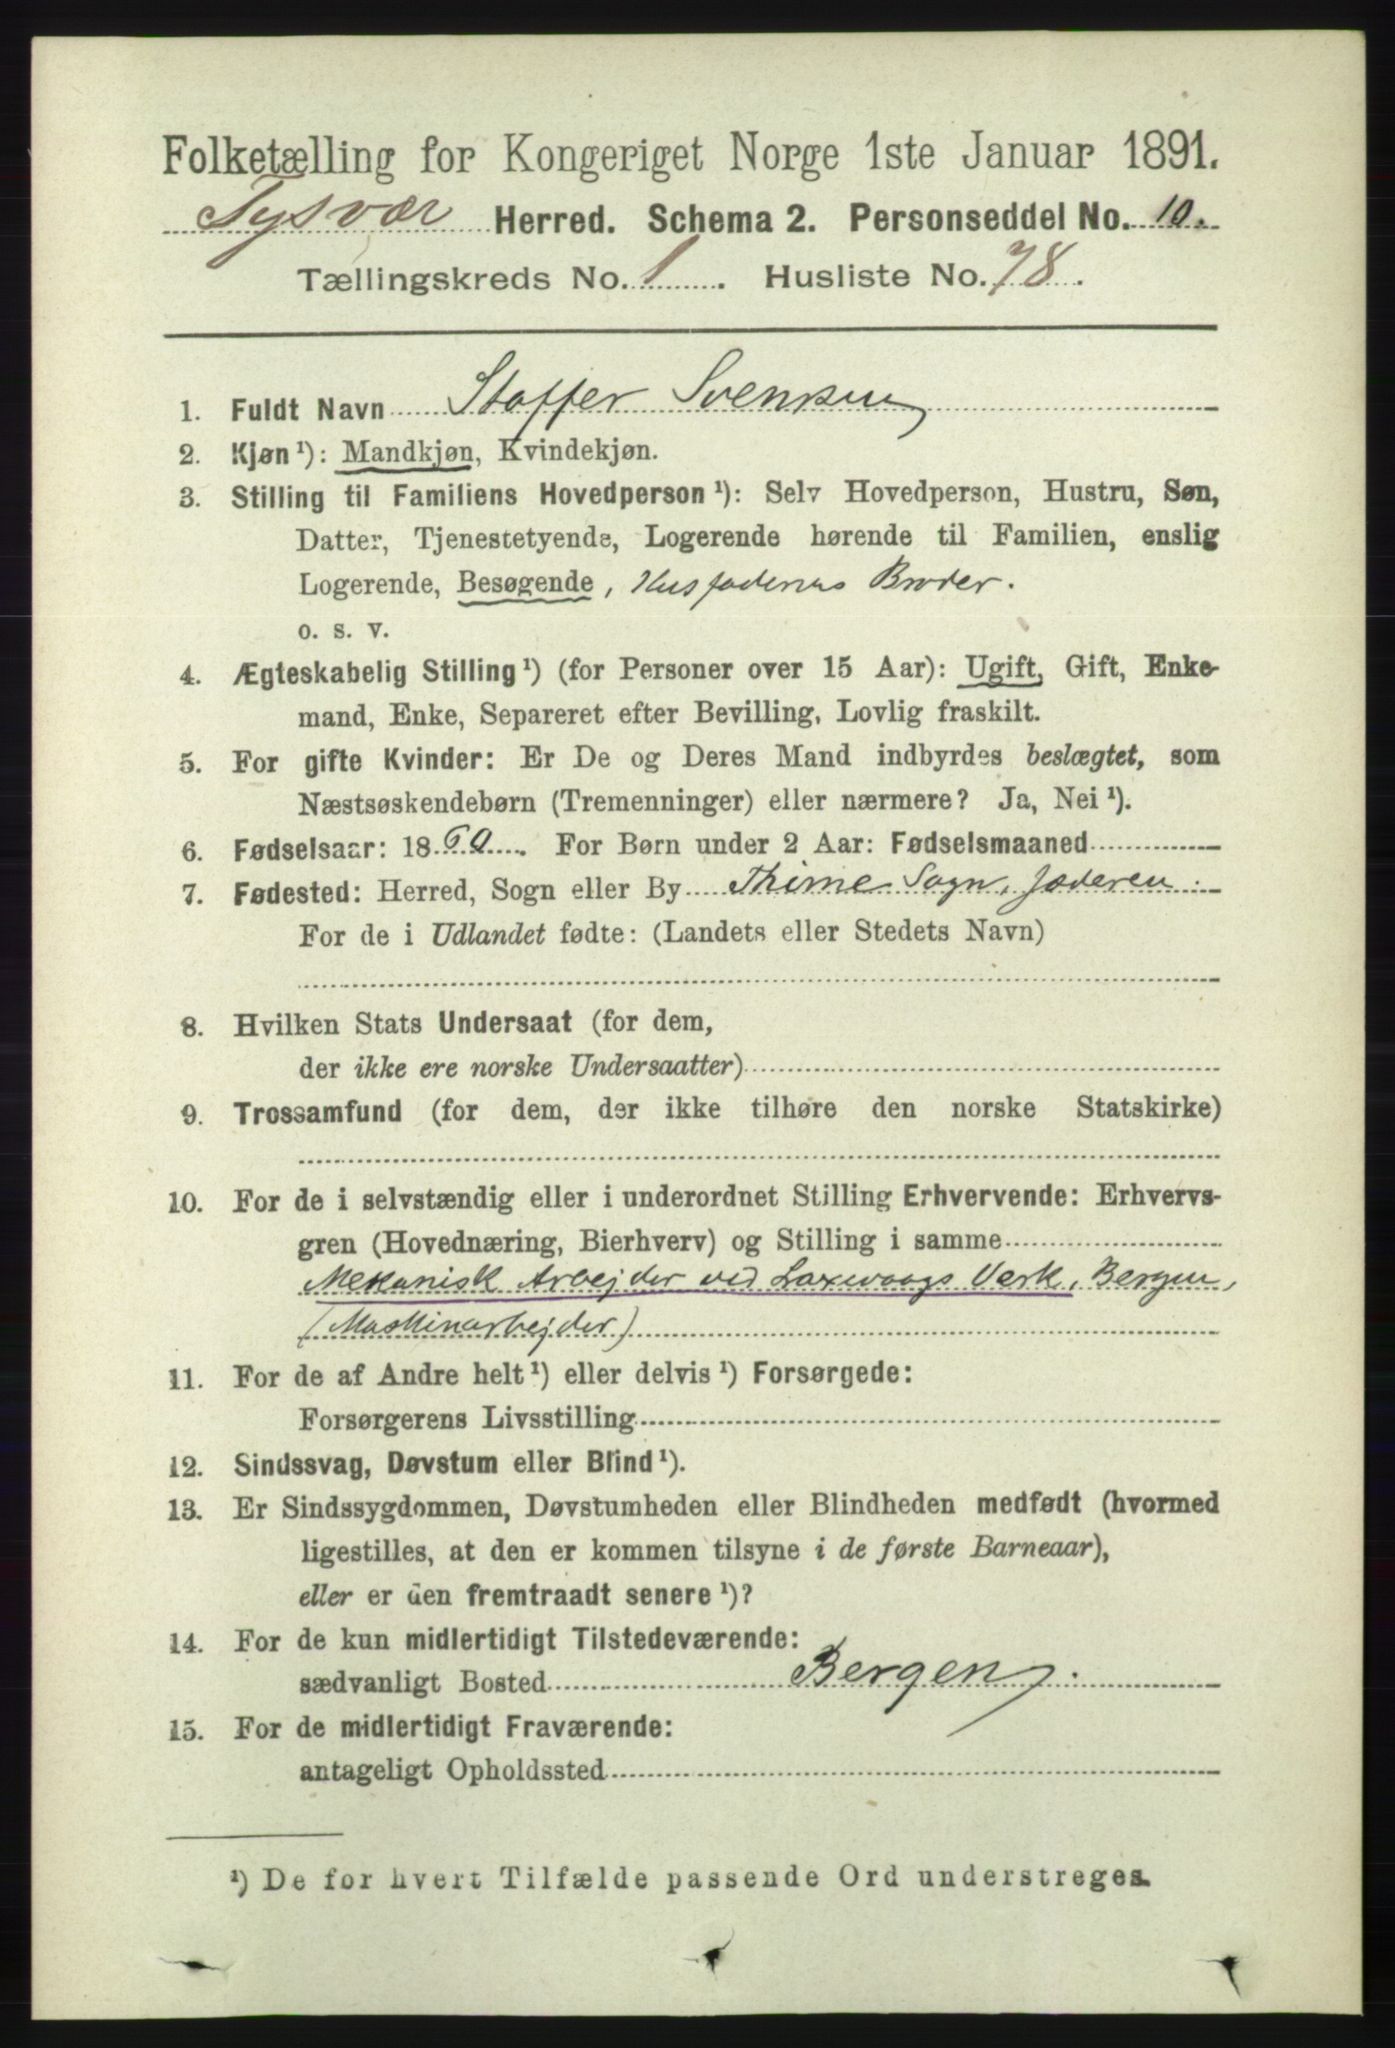 Folketælling for Kongeriget Norge 1ste Januar 1891.
Tysvær Herred. Schema 2. Personseddel No. 10.
Tællingskreds No. 1. Husliste No. 78.
1. Fuldt Navn Staffer Svensen
2. Kjøn ¹): Mandkjøn, Kvindekjøn.
3. Stilling til Familiens Hovedperson ¹): Selv Hovedperson, Hustru, Søn,
Datter, Tjenestetyende, Logerende hørende til Familien, enslig
Logerende, Besøgende, Husfaderens Broder.
o. s. v.
4. Ægteskabelig Stilling ¹) (for Personer over 15 Aar): Ugift, Gift, Enke-
mand, Enke, Separeret efter Bevilling, Lovlig fraskilt.
5. For gifte Kvinder: Er De og Deres Mand indbyrdes beslægtet, som
Næstsøskendebørn (Tremenninger) eller nærmere? Ja, Nei ¹).
6. Fødselsaar: 1860. For Børn under 2 Aar: Fødselsmaaned
7. Fødested: Herred, Sogn eller By Thime Sogn, Jæderen.
For de i Udlandet fødte: (Landets eller Stedets Navn)
8. Hvilken Stats Undersaat (for dem,
der ikke ere norske Undersaatter)
9. Trossamfund (for dem, der ikke tilhøre den norske Statskirke)
10. For de i selvstændig eller i underordnet Stilling Erhvervende: Erhvervs-
gren (Hovednæring, Bierhverv) og Stilling i samme
Mekanisk Arbejder ved Laxevaags Verk, Bergen,
(Maskinarbejder)
11. For de af Andre helt ¹) eller delvis ¹) Forsørgede:
Forsørgerens Livsstilling
12. Sindssvag, Døvstum eller Blind ¹).
13. Er Sindssygdommen, Døvstumheden eller Blindheden medfødt (hvormed
ligestilles, at den er kommen tilsyne i de første Barneaar),
eller er den fremtraadt senere ¹)?
14. For de kun midlertidigt Tilstedeværende:
sædvanligt Bosted Bergen.
15. For de midlertidigt Fraværende:
antageligt Opholdssted
¹) De for hvert Tilfælde passende Ord understreges.